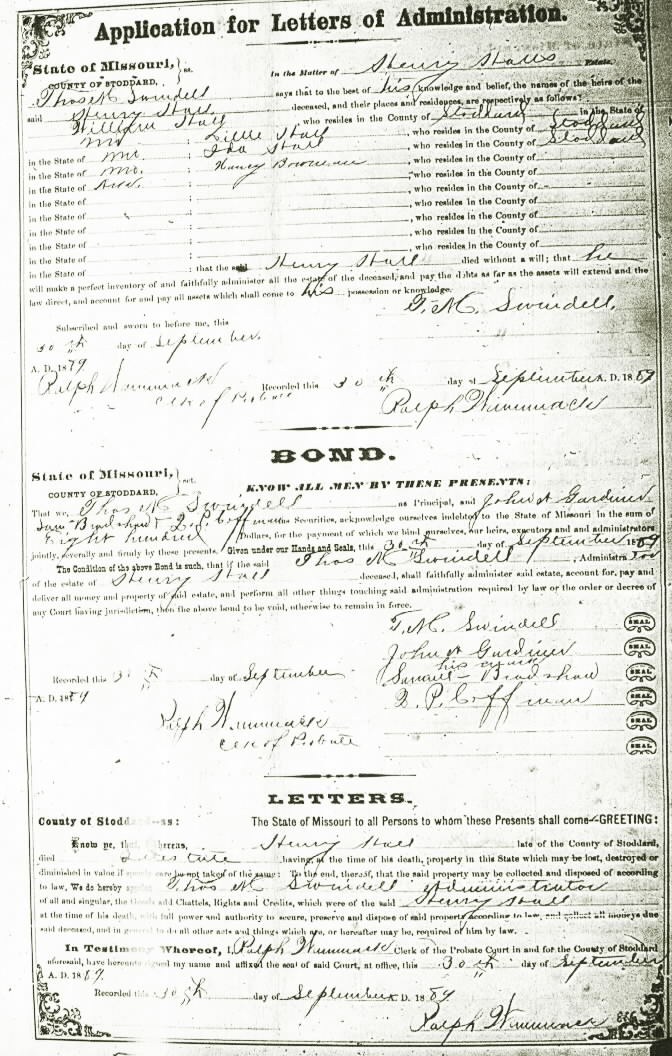 Application for Letters of Administration.
State of Missouri, } ss.
COUNTY OF STODDARD,
In the Matter of Henry Stalls Estate.
Thos M Swindell says that to the best of his knowledge and belief, the names of the heirs of the
said Henry Stall deceased, and their places and residences, are respectively as follows:
William Stall , who resides in County of Stoddard in the State of
Mo : Lillie Stall , who resides in the County of Stoddard
in the State of Mo. : Ida Stall , who resides in the County of Stoddard
in the State of Mo. : Nancy Bowman , who resides in the County of
in the State of Ark. : , who resides in the County of
in the State of : , who resides in the County of
in the State of : , who resides in the County of
in the State of : , who resides in the County of
in the State of : , who resides in the County of
in the State of : , who resides in the County of
in the State of : that the said Henry Stall died without a will; that he
will make a perfect inventory of and faithfully administer all the estate of the deceased, and pay the debts as far as the assets will extend and the
law direct, and account for and pay all assets which shall come to his possession or knowledge.
T. M. Swindell.
Subscribed and sworn to before me, this
30th day of September.
A. D. 1889
Ralph Wammack
Clk of Probate
Recorded this 30th day of September A. D. 1889
Ralph Wammack
BOND.
State of Missouri, } sct.
COUNTY OF STODDARD,
KNOW ALL MEN BY THESE PRESENTS:
That we, Thos M Swindell as Principal, and John H Gardiner
Saml Bradshaw & D. P. Coffman as Securities, acknowledge ourselves indebted to the State of Missouri in the sum of
Eight hundred Dollars, for the payment of which we bind ourselves, our heirs, executors and and administrators
jointly, severally and firmly by these presents. Given under our Hands and Seals, this 30th day of September 1889
The Condition of the above Bond is such, that if the said Thos M Swindell , Administrator
of the estate of Henry Stall deceased, shall faithfully administer said estate, account for, pay and
deliver all money and property of said estate, and perform all other things touching said administration required by law or the order or decree of
any Court having jurisdiction, then the above bond to be void, otherwise to remain in force.
T. M. Swindell SEAL
John H Gardiner SEAL
his mark
Samuel Bradshaw SEAL
D. P. Coffman SEAL
SEAL
SEAL
Recorded this 30th day of September
A. D. 1889
Ralph Wammack
Clk of Probate
LETTERS.
County of Stoddard—ss: The State of Missouri to all Persons to whom these Presents shall come—GREETING:
Know ye, that Whereas, Henry Stall late of the County of Stoddard,
died Intestate having, at the time of his death, property in this State which may be lost, destroyed or
diminished in value if speedy care be not taken of the same: To the end, thereof, that the said property may be collected and disposed of according
to law, We do hereby appoint Thos M Swindell Administrator
of all and singular, the Goods add Chattels, Rights and Credits, which were of the said Henry Stall
at the time of his death, with full power and authority to secure, preserve and dispose of said property according to law, and collect all moneys due
said deceased, and in general to do all other acts and things which are, or hereafter may be, required of him by law.
In Testimony Whereof, I, Ralph Wammack Clerk of the Probate Court in and for the County of Stoddard
aforesaid, have hereunto signed my name and affixed the seal of said Court, at office, this 30th day of September
A. D. 1889.
Recorded this 30th day of September A. D. 1889
Ralph Wammack